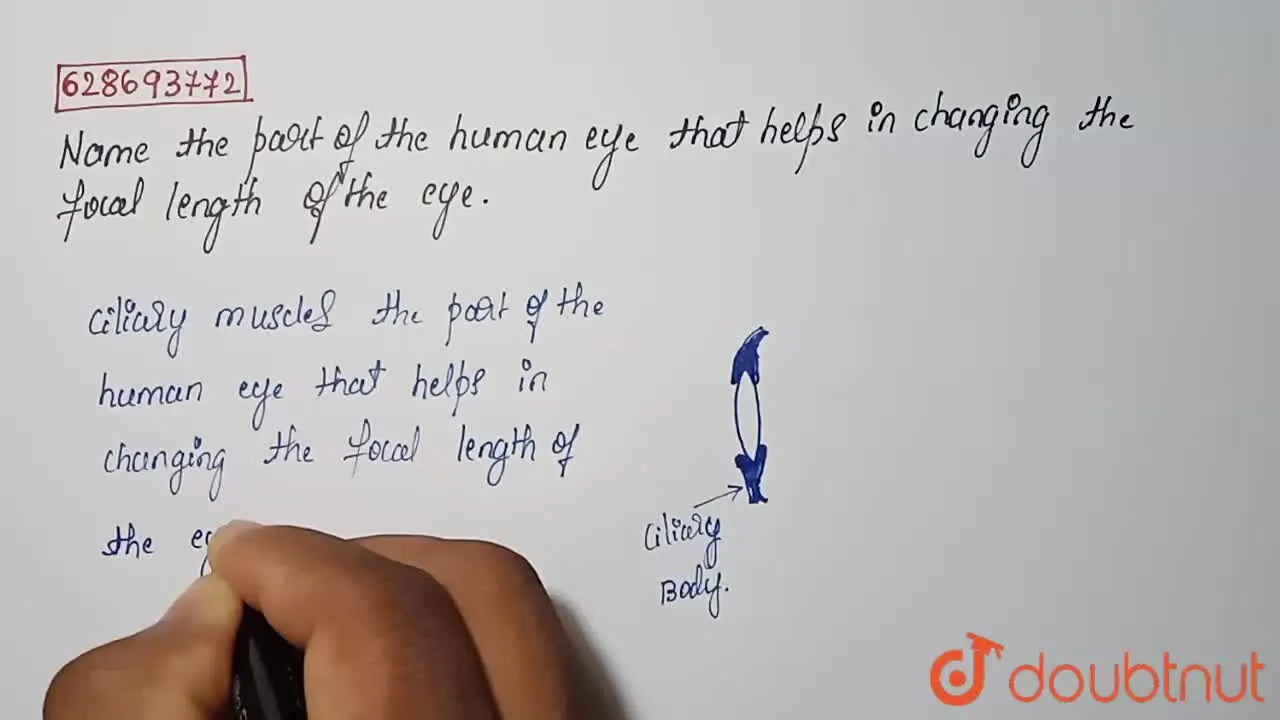 628693772
Name the part of the human eye that helps in changing the
focal length of the eye.
ciliary muscles the part of the
human eye that helps in
changing the focal length of
the ey
ciliary
Body.
doubtnut